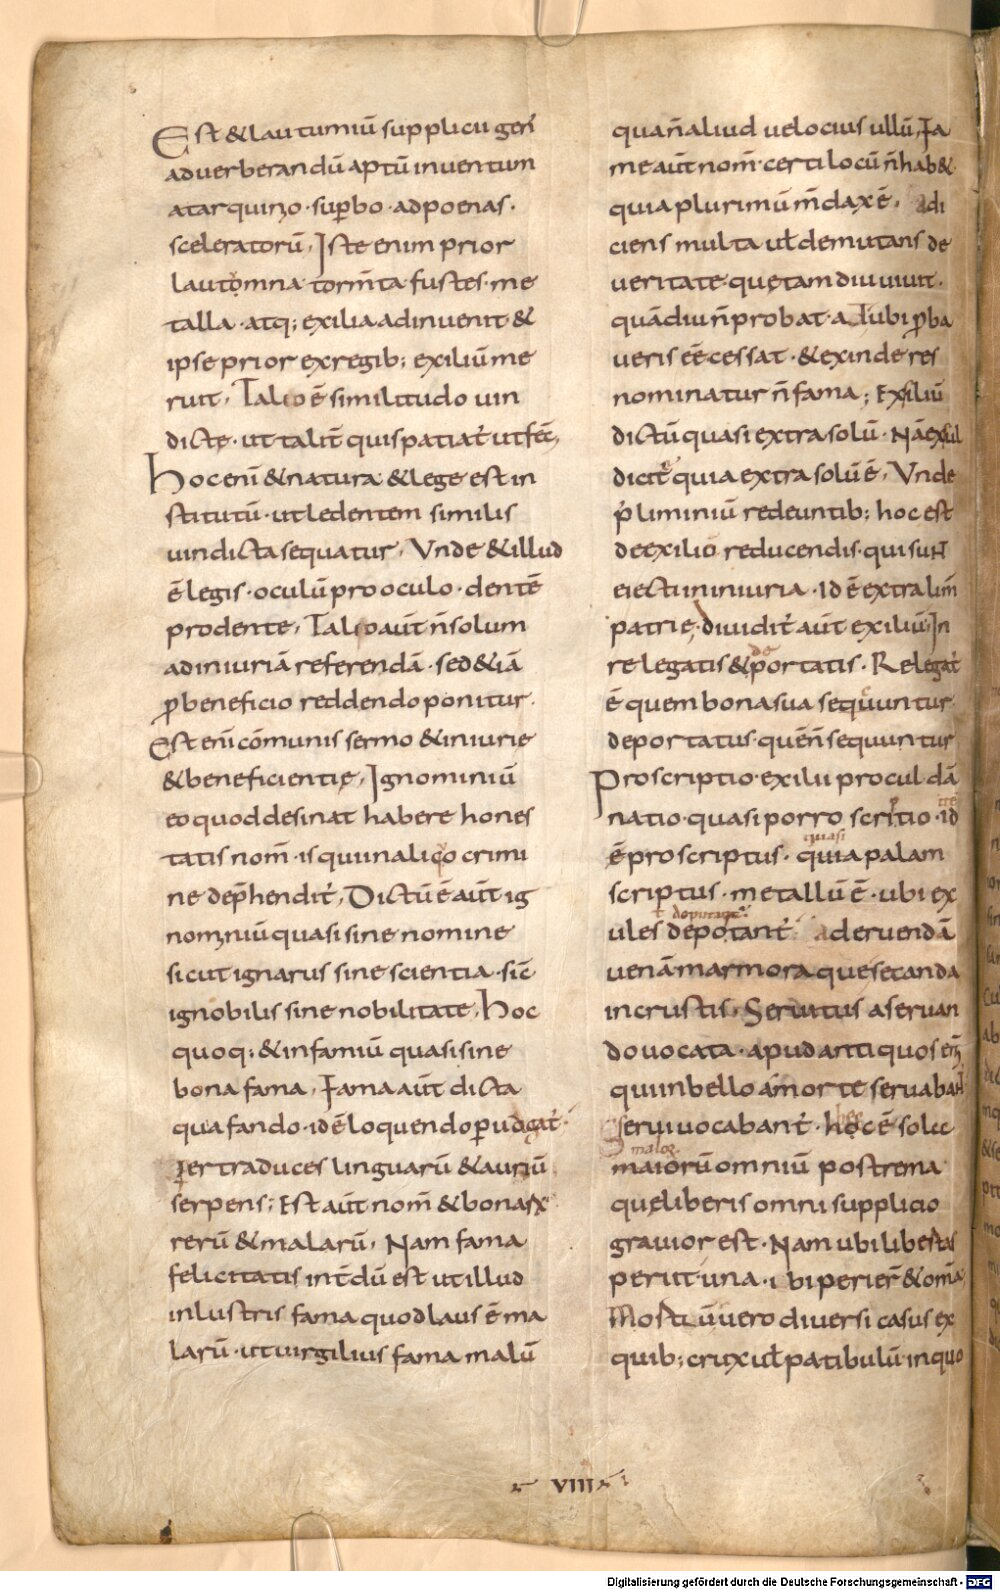 Est & lautumiū supplicii gen̄
ad uerberandū aptū inuentum
a tarquinio · sup̄bo · ad poenas ·
sceleratorū, Iste enim prior
lautomna torm̄ta fustes · me
talla · atq; exilia adinuenit &
ipse prior ex regib; exiliū me
ruit, Talio ē similitudo uin
dictę · ut talit̄ quis patiat̄ ut fec̄,
Hoc eni & natura & lege est in
stitutū · ut ledentem similis
uindicta sequatur, Vnde & illud
ē legis · oculū pro oculo · dentē
pro dente, Talio aūt n̄ solum
ad iniuriā referendā · sed & iā
p̄ beneficio reddendo ponitur ·
Est eni cōmunis sermo & iniurię
& beneficientię, Ignominiū
eo quod desinat habere hones
tatis nom̄ · is qui in alico crimi
ne dep̄hendit̄, Dictū ē aūt ig
nominiū quasi sine nomine
sicut ignarus sine scientia · sic̄
ignobilis sine nobilitate, Hoc
quoq; & infamiū quasi sine
bona fama, Fama aūt dicta
qua fando · id ē loquendo
per traduces linguarū & auriū
serpens; Est aūt nom̄ & bonas
rerū & malarū, Nam fama
felicitatis int̄dū est ut illud
inlustris fama quod laus ē ma
larū · ut uirgilius fama malū
qua n̄ aliud uelocius ullū, Fa
me aūt nom̄ · certi locū n̄ hab&
quia plurimū m̄dax ē · adi
ciens multa uł demutans de
ueritate · quę tam diu uiuit ·
quādiu n̄ probat · at ubi p̄ba
ueris eē cessat · & exinde res
nominatur n̄ fama; Exiliū
dictū quasi extra solū · Nā exsul
dicit̄ quia extra solū ē, Vnde
p̄liminiū redeuntib; hoc est
de exilio reducendis · qui suNT
eiecti in iniuria · Id ē extra lim̄
patrię · diuidit̄ aūt exiliū · In
relegatis & deportatis · Relegat̄
ē quem bona sua sequuntur ·
deportatus · quē n̄ sequuntur
Proscriptio · exilii procul dā
natio · quasi porro scritio · id
ē proscriptus · quia palam
quasi
scriptus · metallū ē · ubi ex
ules depotant̄ ad eruendā
uenā marmora que secanda
in crustis, Seruitus a seruan
do uocata · apud antiquos eni
qui in bello a morte seruabaNT
serui uocabant̄ · hoc ē sole
malorū
maiorū omniū postrema
quę liberis omni supplicio
grauior est · Nam ubi libertas
periit una · ibi perier̄ & oma
Mosti ū uero diuersi casus ex
quib; crux uł patibulū in quo
VIII
Digitalisierung gefördert durch die Deutsche Forschungsgemeinschaft - DFG